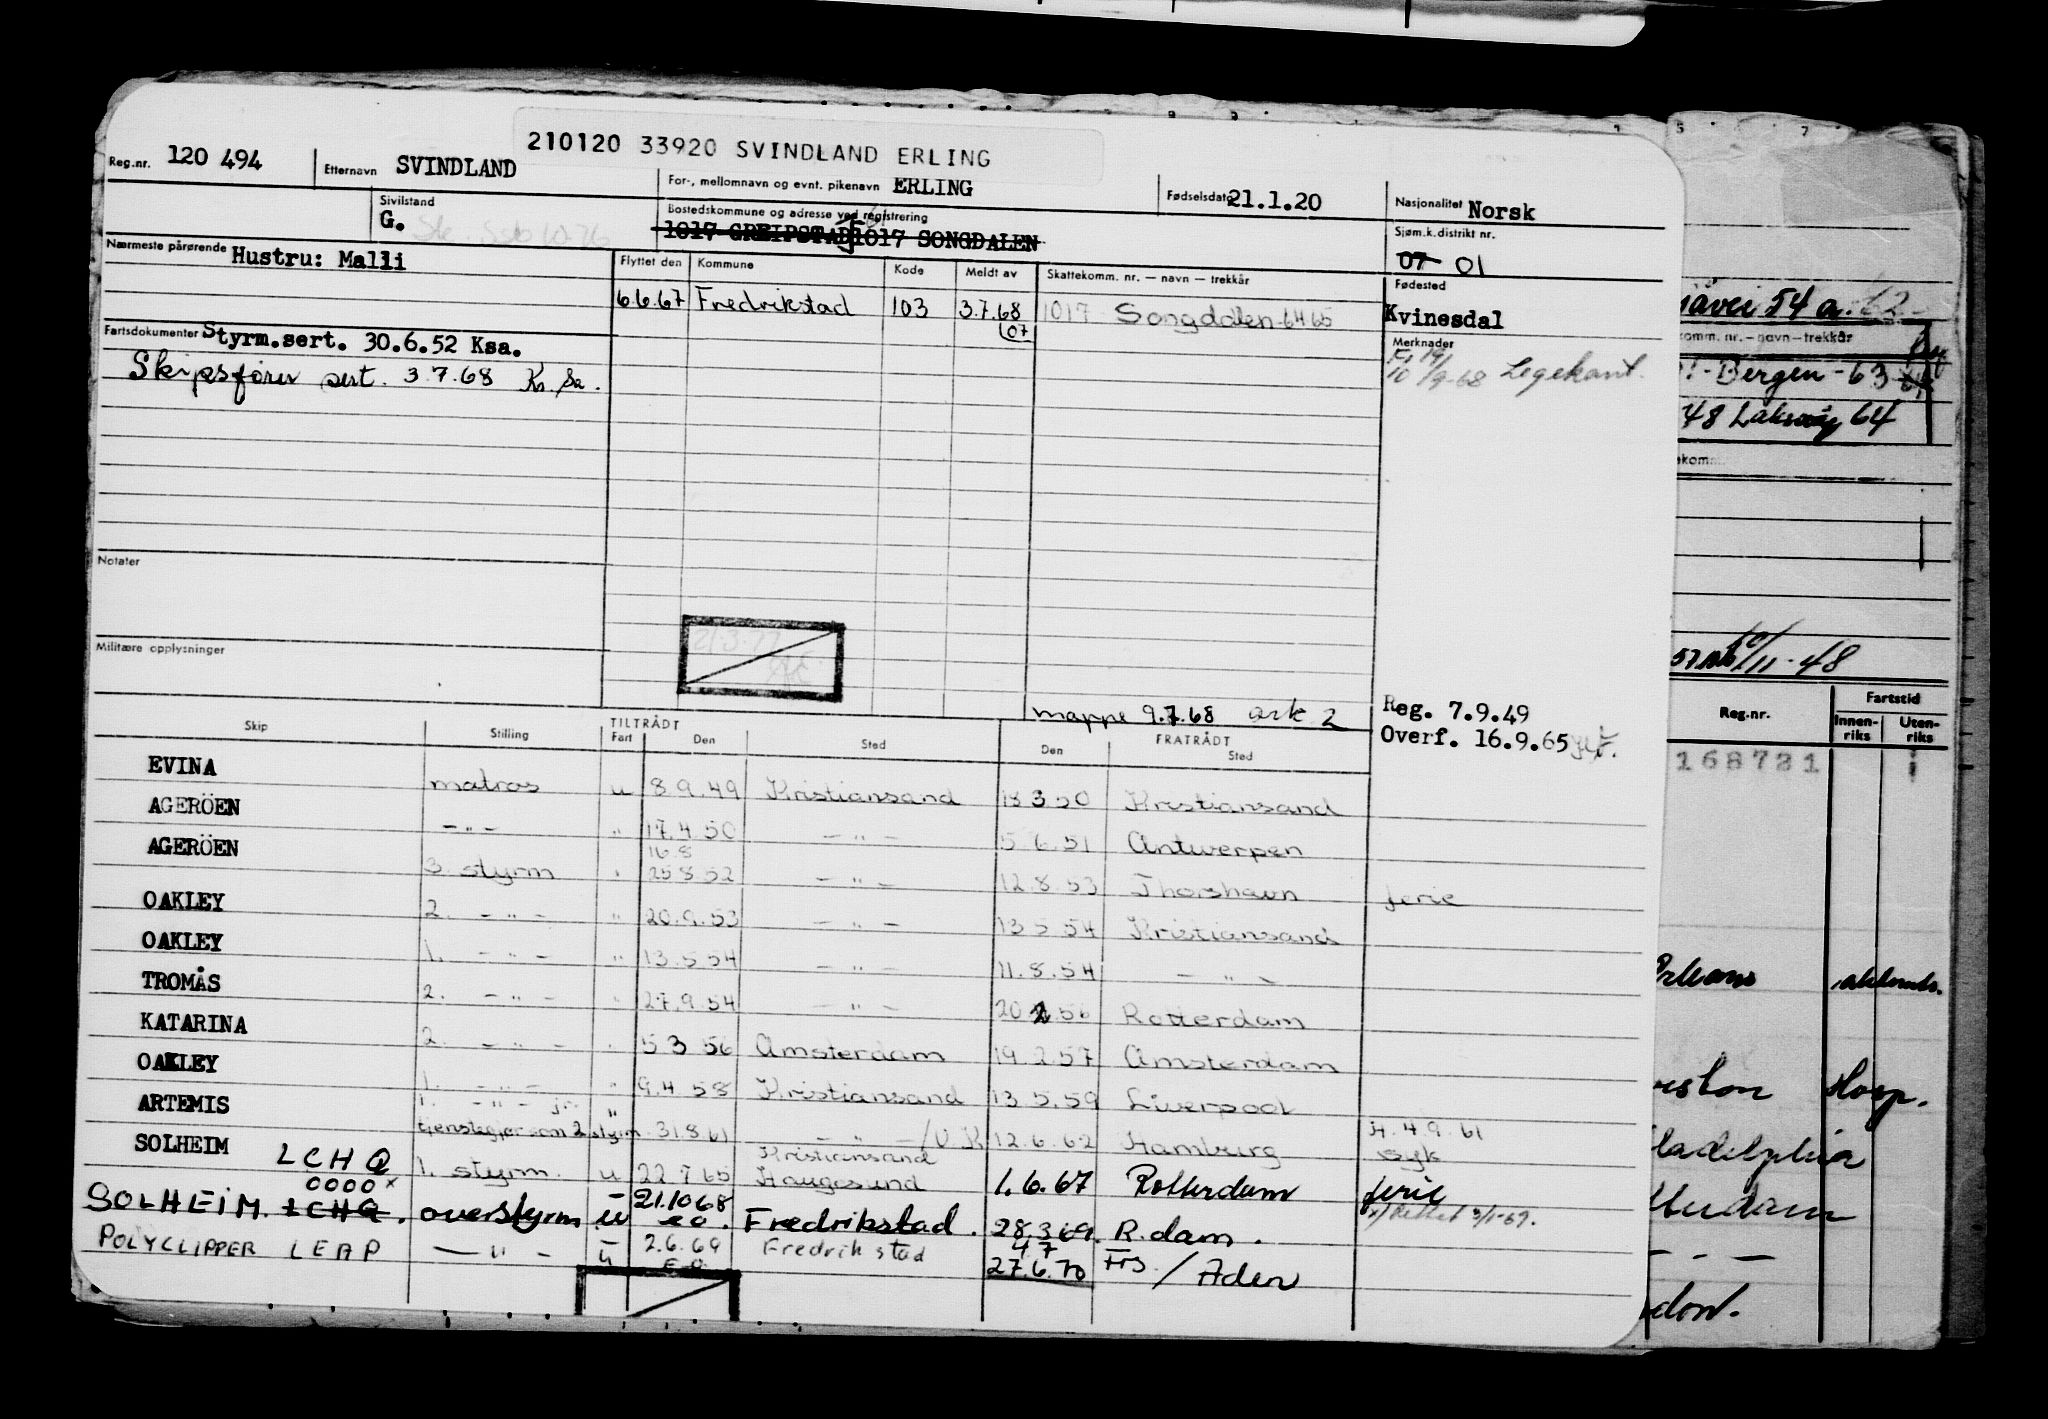 210120 33920 SVINDLAND ERLING
Reg.nr. 120 494 Etternavn SVINDLAND For-, mellomnavn og evnt. pikenavn ERLING Fødselsdato 21.1.20 Nasjonalitet Norsk
Sivilstand G. Bostedskommune og adresse ved registrering 1017 GREIPSTAD 1017 SONGDALEN Sjøm.k.distrikt nr. 07 01
Nærmeste pårørende Hustru: Malli
Flyttet den Kommune Kode Meldt av Skattekomm. nr. — navn — trekkår Fødested
6.6.67 Fredrikstad 103 3.7.68 1017 Songdalen 64 65 Kvinesdal
07
Fartsdokumenter Styrm.sert. 30.6.52 Ksa. Merknader
Skipsfører sert. 3.7.68 Kr. Sa. 19/9-68 Legekont.
Notater
21.3.77
Militære opplysninger
mappe 9.7.68 ark 2 Reg. 7.9.49
Overf. 16.9.65
Skip Stilling TILTRÅDT Fart Den Sted FRATRÅDT Den Sted
EVINA matros u 8 9.49 Kristiansand 18 3 50 Kristiansand
AGERÖEN - " - " 17.4 50 - " - 5.6.51 Antwerpen
16.8
AGERÖEN 3. styrm " 25 8 52 - " - 12.8.53 Thorshavn ferie
OAKLEY 2. - " - " 20.9.53 - " - 13 5 54 Kristiansand
OAKLEY 1. - " - " 13.5 54 - " - 11.8.54 - " -
TROMÅS 2. - " - " 27.9.54 - " - 20 2 56 Rotterdam
KATARINA 2. - " - " 5 3 56 Amsterdam 19.2.57 Amsterdam
OAKLEY 1. - " - " 9.4 58 Kristiansand 13 5.59 Liverpool
ARTEMIS 1. - " - jr. " tjenestegjør som 2 styrm 31.8.61 - " - /U.K 12.6.62 Hamburg 4.9.61 syk
SOLHEIM LCHQ 1. styrm. u 22 7 65 Kristiansand Haugesund 1.6.67 Rotterdam ferie
OOOO x
SOLHEIM. LCHQ. overstyrm u 21.10 68 eo. Fredrikstad. 28.3 69. R.dam. x) Rettet 3/1-69.
POLYCLIPPER LEAP - " - u 2.6.69 Fredrikstad 4 7
27.6.70 / Aden
54 a
komm. nr.—navn—trekkår
Bergen - 63
48 Laksevåg 64
11-48
Reg.nr. Fartstid
Innenriks Utenriks
168721
Orleans
Hosp.
ladelphia
tterdam
- - -